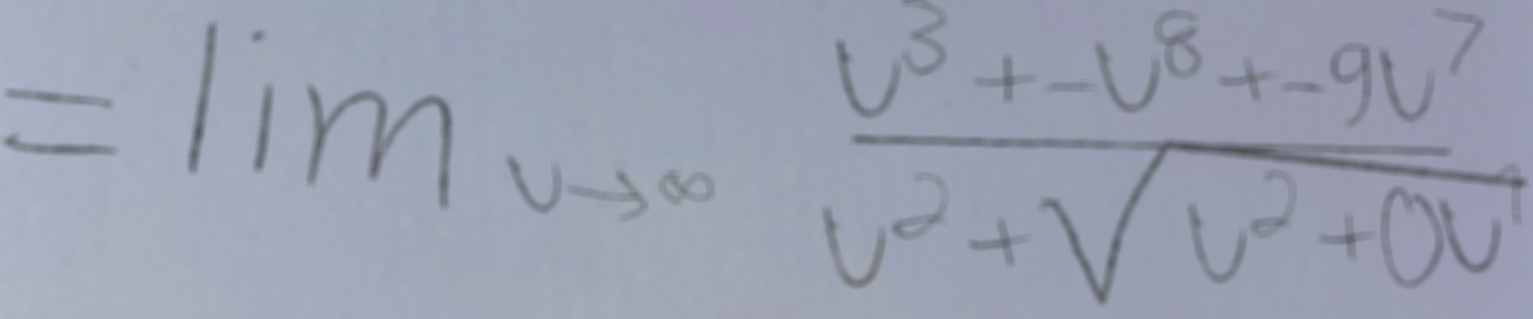 = lim_{v→∞} \frac{v^3 + -v^8 + -9v^7}{v^2 + \sqrt{v^2 + 0v^9}}